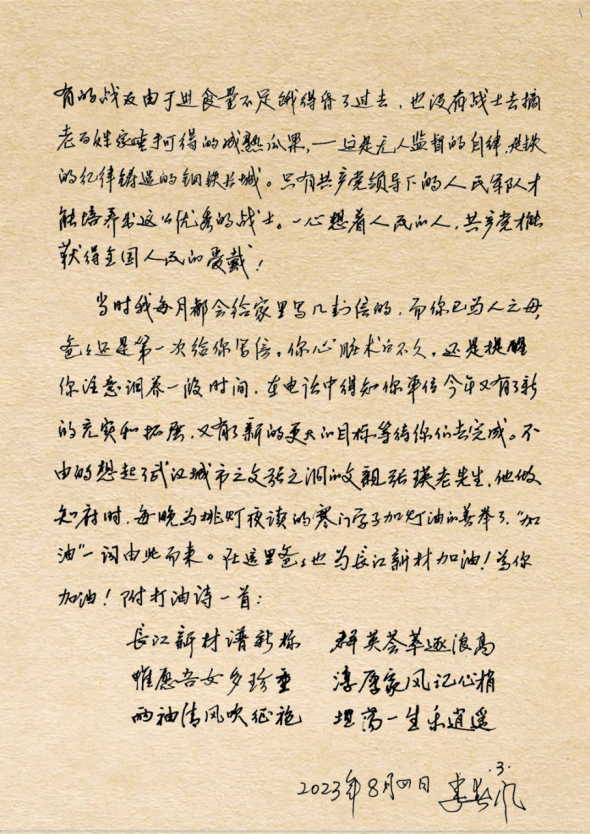 有的战友由于进食量不足饿得昏了过去，也没有战士去摘
老百姓家唾手可得的成熟瓜果，——这是无人监督的自律，是铁
的纪律铸造的钢铁长城。只有共产党领导下的人民军队才
能培养出这么优秀的战士。一心想着人民的人，共产党才能
获得全国人民的爱戴！
当时我每月都会给家里写几封信的，而你已为人之母，
爸爸还是第一次给你写信。你心脏术后不久，还是提醒
你注意调养一段时间，在电话中得知你单位今年又有了新
的充实和拓展，又有了新的更大的目标等待你们去完成。不
由的想起了武汉城市之父张之洞的父亲张瑛老先生，他做
知府时，每晚为挑灯夜读的寒门学子加灯油的善举了，“加
油”一词由此而来。在这里爸爸也为长江新材加油！为你
加油！附打油诗一首：
長江新材谱新标 群英荟萃逐浪高
惟愿吾女多珍重 淳厚家风记心梢
两袖清风吹征袍 坦荡一生乐逍遥
2023年8月四日
.3.